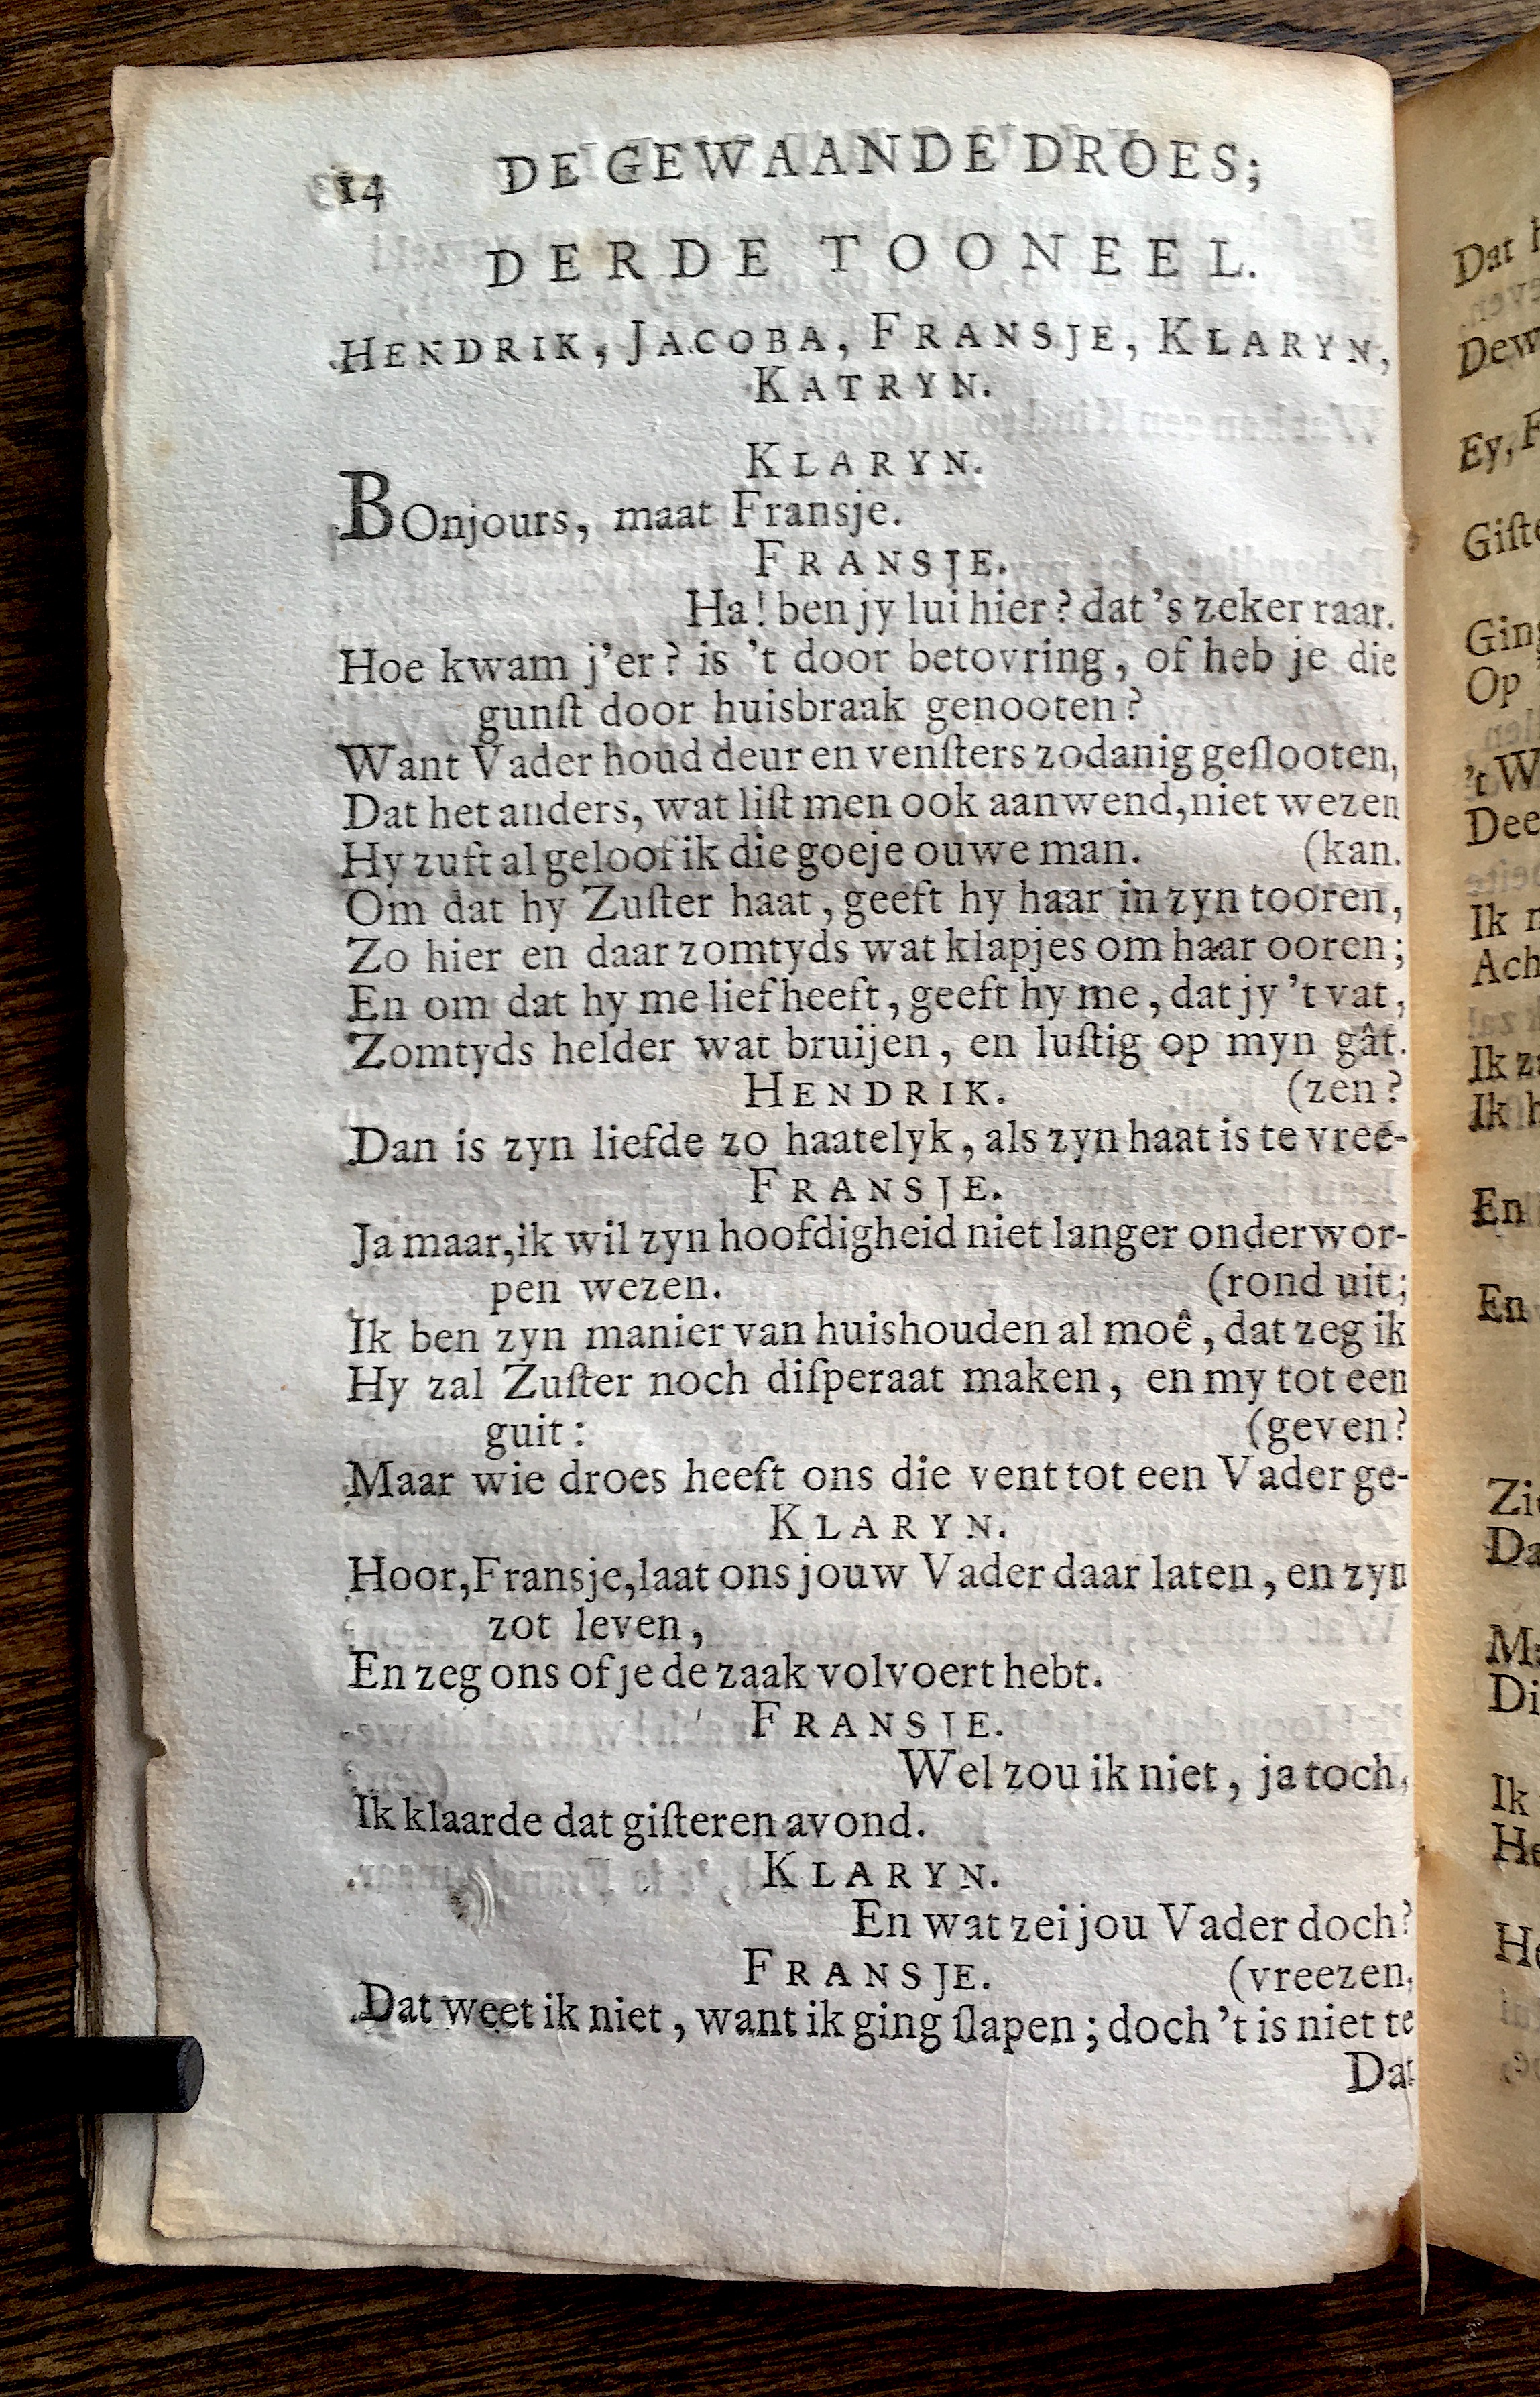 14 DE GEWAANDE DROES;
DERDE TOONEEL.
HENDRIK, JACOBA, FRANSJE, KLARYN,
KATRYN.
KLARYN.
BOnjours, maat Fransje.
FRANSJE.
Ha! ben jy lui hier? dat 's zeker raar.
Hoe kwam j'er? is 't door betovring, of heb je die
gunſt door huisbraak genooten?
Want Vader houd deur en venſters zodanig geſlooten,
Dat het anders, wat liſt men ook aanwend, niet wezen
Hy zuft al geloof ik die goeje ouwe man. (kan.
Om dat hy Zuſter haat, geeft hy haar in zyn tooren,
Zo hier en daar zomtyds wat klapjes om haar ooren;
En om dat hy me lief heeft, geeft hy me, dat jy 't vat,
Zomtyds helder wat bruijen, en luſtig op myn gât.
HENDRIK. (zen?
Dan is zyn liefde zo haatelyk, als zyn haat is te vree-
FRANSJE.
Ja maar, ik wil zyn hoofdigheid niet langer onderwor-
pen wezen. (rond uit;
Ik ben zyn manier van huishouden al moê, dat zeg ik
Hy zal Zuſter noch diſperaat maken, en my tot een
guit: (geven?
Maar wie droes heeft ons die vent tot een Vader ge-
KLARYN.
Hoor, Fransje, laat ons jouw Vader daar laten, en zyn
zot leven,
En zeg ons of je de zaak volvoert hebt.
FRANSJE.
Wel zou ik niet, ja toch,
Ik klaarde dat giſteren avond.
KLARYN.
En wat zei jou Vader doch?
FRANSJE. (vreezen,
Dat weet ik niet, want ik ging ſlapen; doch 't is niet te
Dat
Dat
Dew
Ey, F
Giſte
Ging
Op
't W
Dee
Ik
Ach
Ik za
Ik h
En
En
Zie
Da
Ma
Di
Ik
He
He